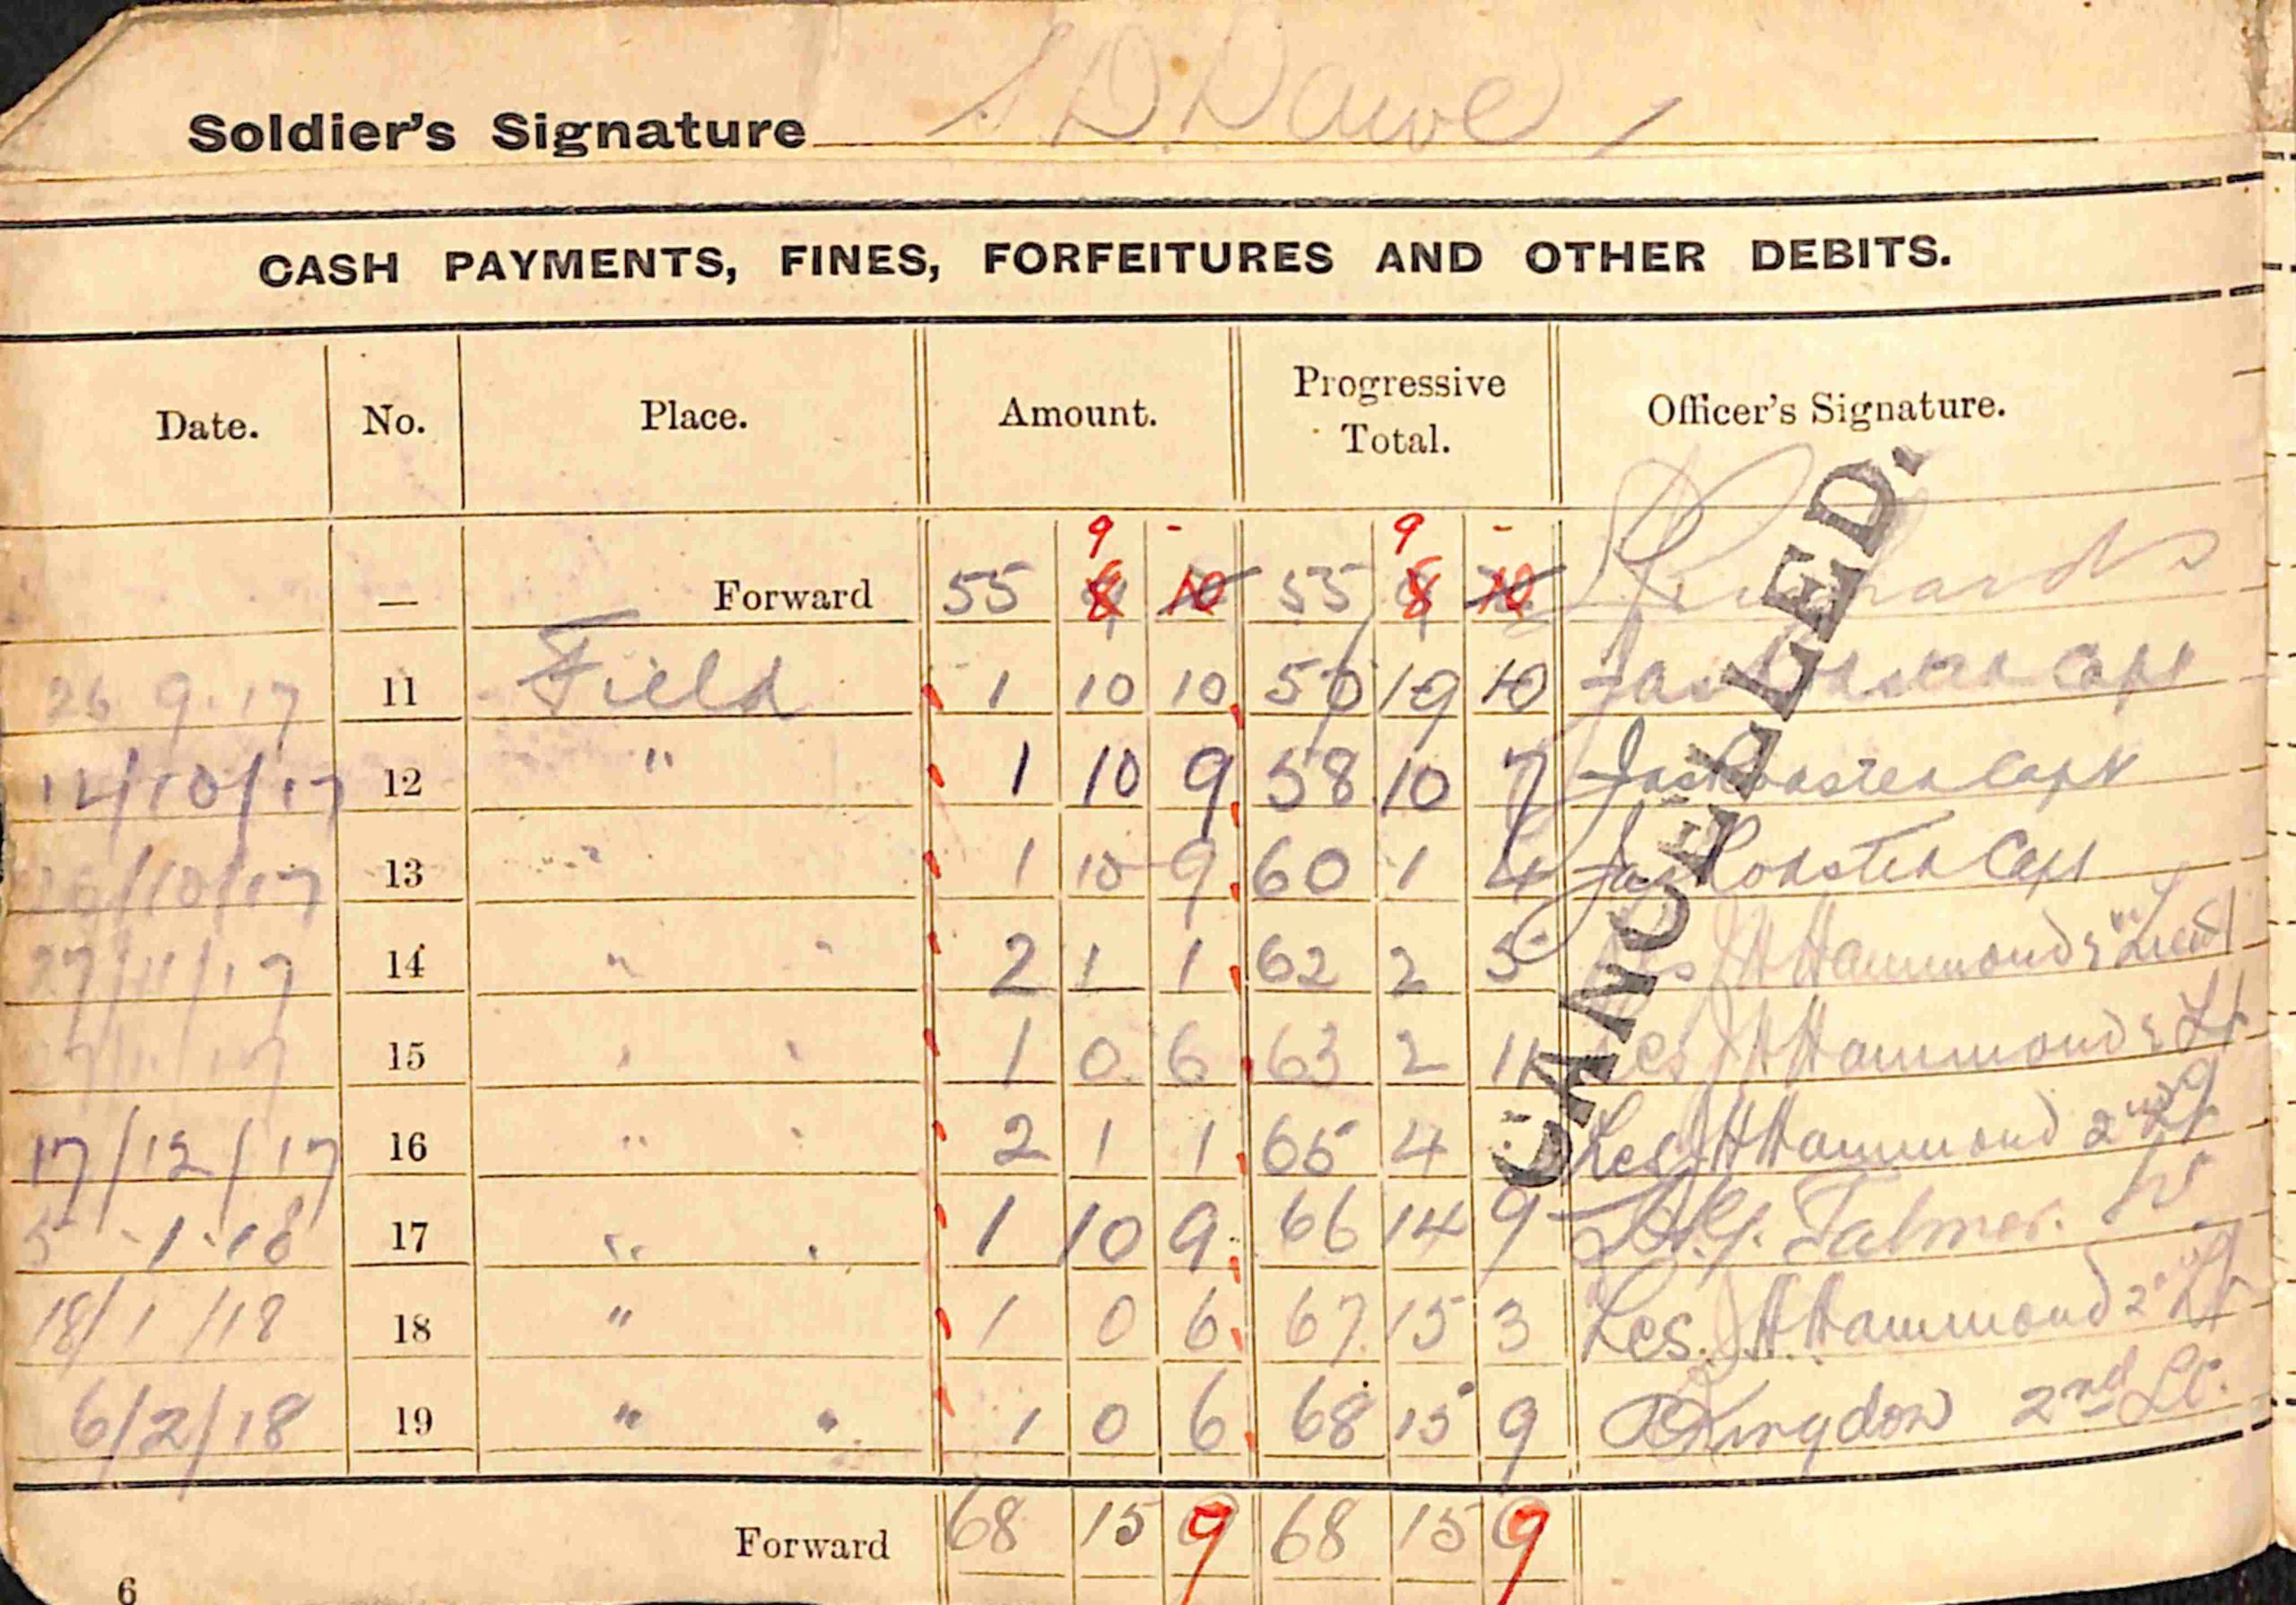 Soldier's Signature D. Dawe
CASH PAYMENTS, FINES, FORFEITURES AND OTHER DEBITS.
Date. No. Place. Amount. Progressive Total. Officer's Signature.
9 - 9 -
— Forward 55 8 10 55 8 10
26 9.17 11 Field 1 10 10 56 19 10 Capt
12/10/17 12 " 1 10 9 58 10 7 Capt
/10/17 13 " 1 10 9 60 1 4 Capt
27/11/17 14 " " 2 1 1 62 2 5 Hammond 2nd Lieut
15 " " 1 0 6 63 2 11 Les J H Hammond 2 Lt
17/12/17 16 " " 2 1 1 65 4 Les J H Hammond 2nd Lt
5 - 1 - 18 17 " " 1 10 9 66 14 9 Lt
18/1/18 18 " 1 0 6 67 15 3 Les. J H Hammond 2nd Lt
6/2/18 19 " " 1 0 6 68 15 9 Kingdon 2nd Lt.
Forward 68 15 9 68 15 9
CANCELLED.
6